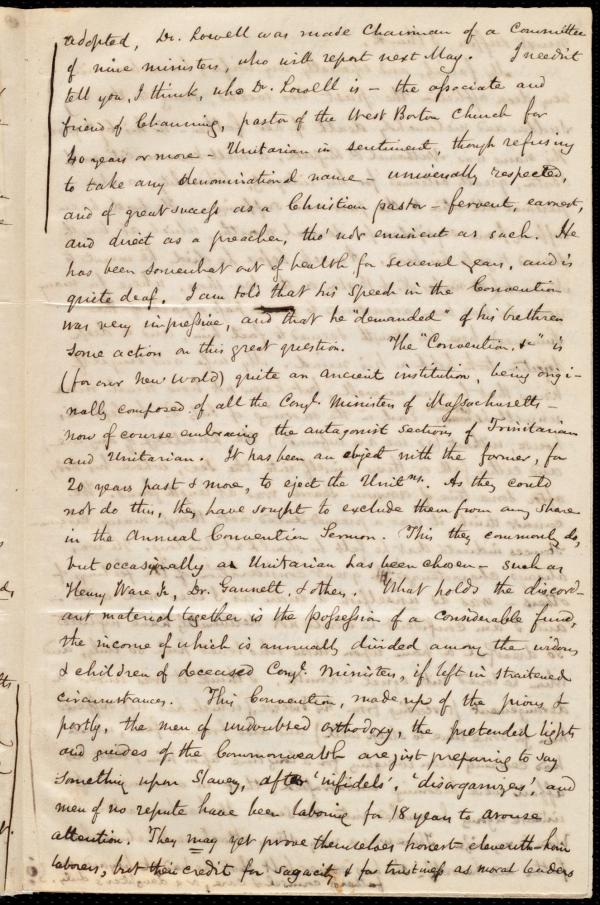 adopted, Dr. Lowell was made Chairman of a Committee
of nine ministers, who will report next May. I needn't
tell you, I think, who Dr. Lowell is – the associate and
friend of Channing, pastor of the West Boston Church for
40 years or more – Unitarian in sentiment, though refusing
to take any denominational name – universally respected,
and of great success as a Christian pastor – fervent, earnest,
and direct as a preacher, tho' not eminent as such. He
has been somewhat out of health for several years, and is
quite deaf. I am told that his speech in the Convention
was very impressive, and that he "demanded" of his brethren
some action on this great question. The "Convention, &c" is
(for our New World) quite an ancient institution, being origi-
nally composed of all the Congl. Ministers of Massachusetts –
now of course embracing the antagonist sections of Trinitarian
and Unitarian. It has been an object with the former, for
20 years past & more, to eject the Unitns. As they could
not do this, they have sought to exclude them from any share
in the Annual Convention Sermon. This they commonly do,
but occasionally a Unitarian has been chosen – such as
Henry Ware Jr, Dr. Gannett, & others. What holds the discord-
ant material together is the possession of a considerable fund,
the income of which is annually divided among the widows
& children of deceased Congl. Ministers, if left in straitened
circumstances. This Convention, made up of the pious &
portly, the men of undoubted orthodoxy, the pretended lights
and guides of the Commonwealth are just preparing to say
something upon Slavery, after 'infidels', 'disorganizers', and
men of no repute have been laboring for 18 years to arouse
attention. They may yet prove themselves honest eleventh-hour
laborers, but their credit for sagacity & for trustiness as moral leaders